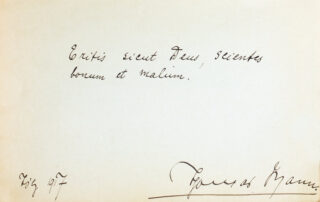 Eritis sicut Deus, scientes
bonum et malum.
Thomas Mann